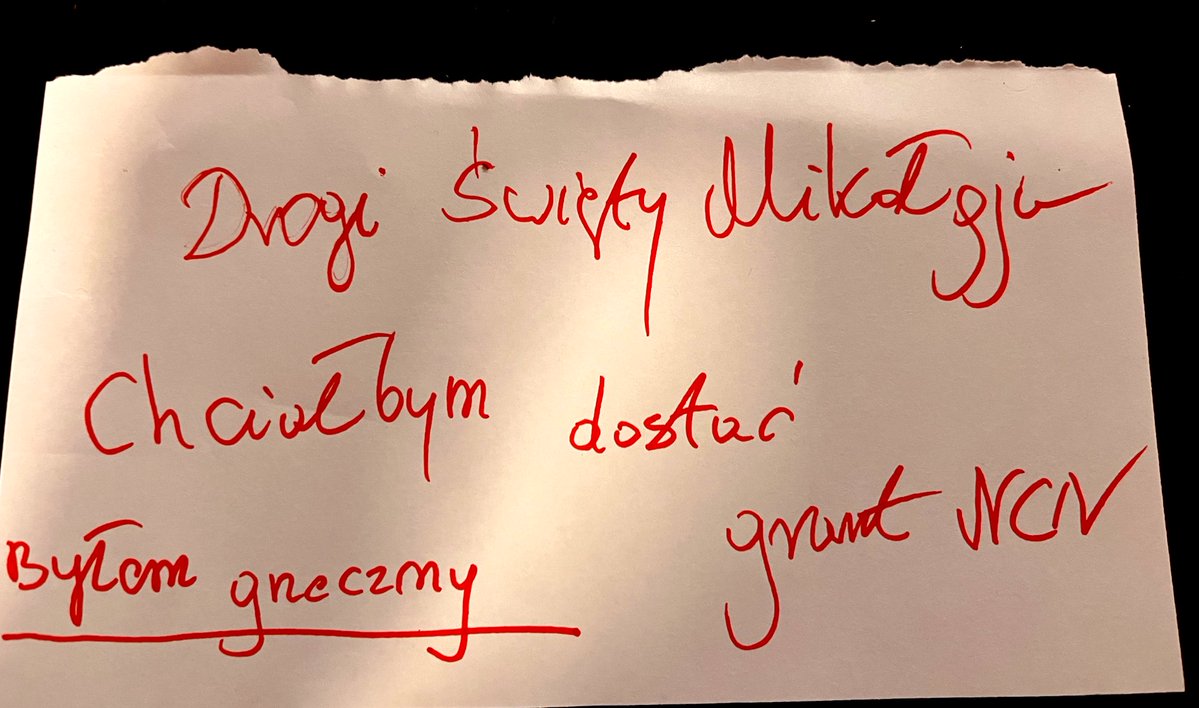 Drogi Święty Mikołaju
Chciałbym dostać
grant NCN
Byłem grzeczny